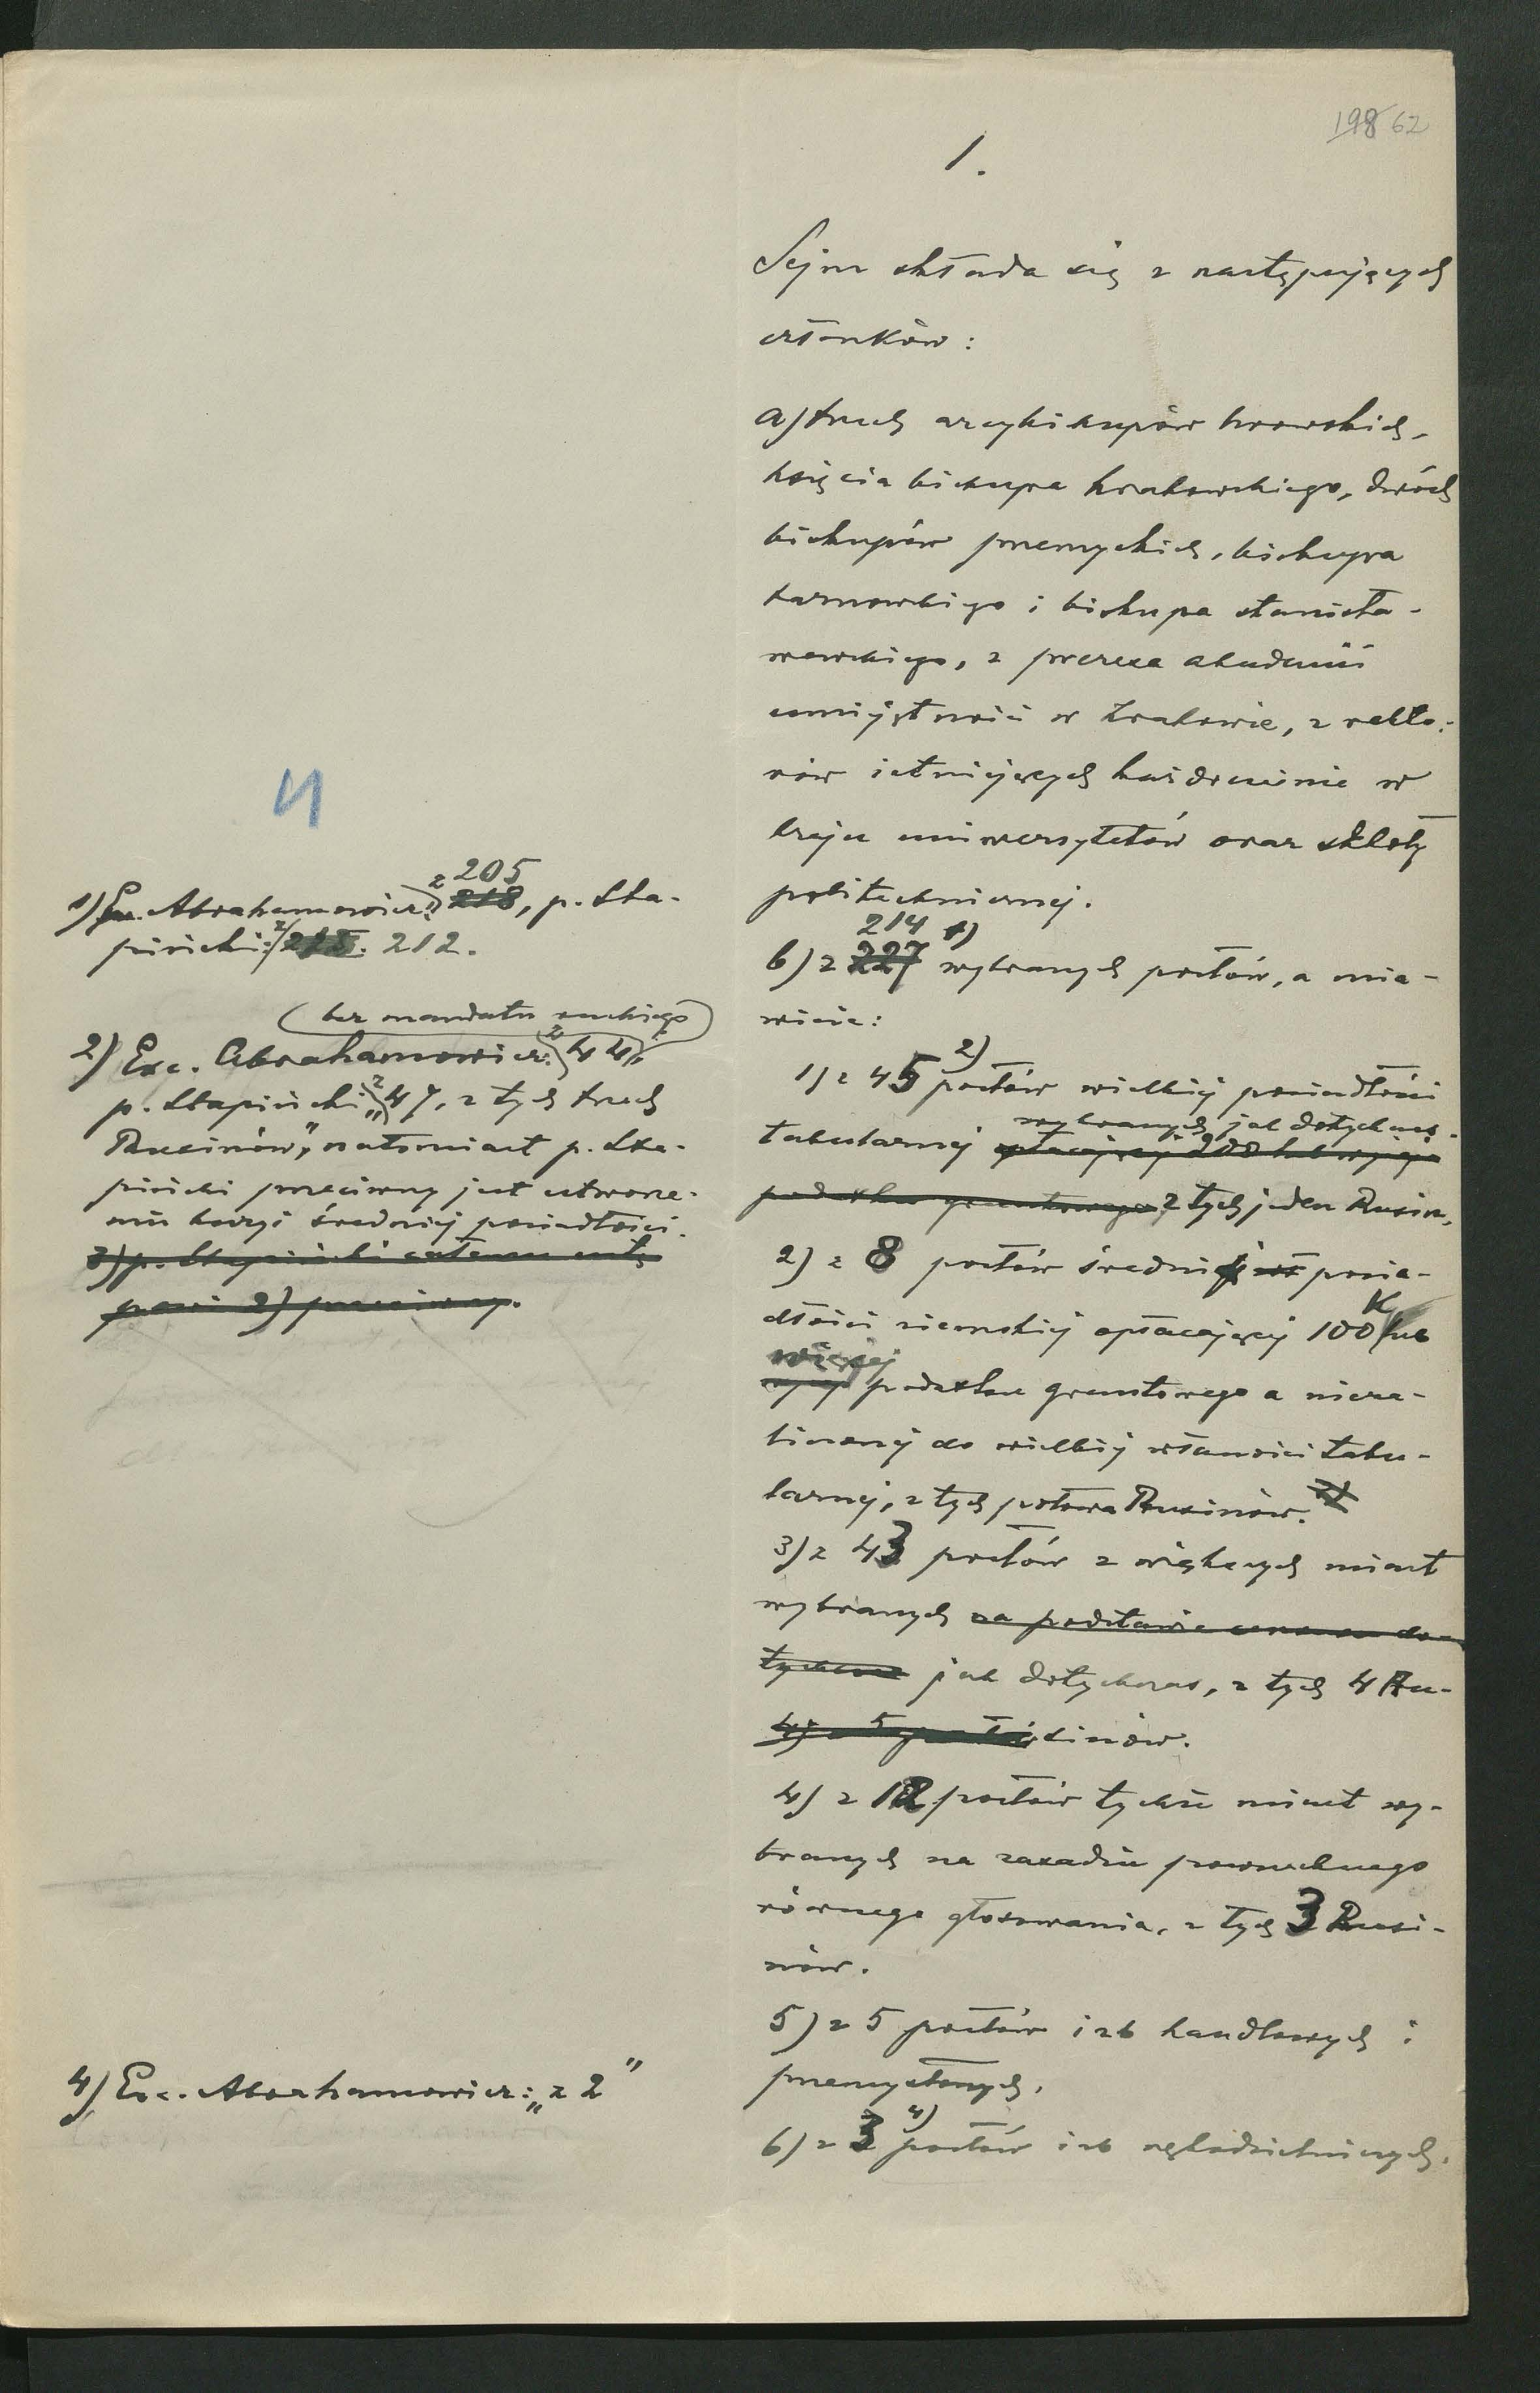 198 62
1.
Sejm składa się z następujących
członków:
a) trzech arcybiskupów lwowskich,
księcia biskupa krakowskiego, dwóch
biskupów przemyskich, biskupa
tarnowskiego i biskupa stanisła-
wowskiego, z prezesa akademii
umiejętności w Krakowie, z rekto-
rów istniejących każdocześnie w
kraju uniwersytetów oraz szkoły
politechnicznej.
214 1)
b) z 227 wybranych posłów, a mia-
wicie:
1) z 45 2) posłów wielkiej posiadłości
wybranych jak dotychczas.
tabularnej opłacającej 200 lub więcej
podatku gruntowego, z tych jeden Rusin.
2) z 8 posłów średniej posia-
dłości ziemskiej opłacającej 100 K lub
więcej
podatku gruntowego a nieza-
liczonej do wielkiej własności tabu-
larnej, z tych połowa Rusinów.
3) z 43 posłów z większych miast
wybranych na podstawie cenzusu do-
tychczas jak dotychczas, z tych 4 Ru-
4) z 5 posłów sinów.
4) z 12 posłów tychże miast wy-
branych na zasadzie powszechnego
równego głosowania, z tych 3 Rusi-
nów.
5) z 5 posłów izb handlowych i
przemysłowych.
6) z 3 4) posłów izb rękodzielniczych.
4
205
1) Exc. Abrahamowicz: z 218, p. Sta-
piński: z 212.
(bez mandatu ruskiego)
2) Exc. Abrahamowicz: z 44,
p. Stapiński „z 47, z tych trzech
Rusinów", natomiast p. Sta-
piński przeciwny jest utworze-
niu kuryi średniej posiadłości.
3) p. Stapiński całemu ustę-
powi 2) przeciwny.
4) Exc. Abrahamowicz: „z 2"